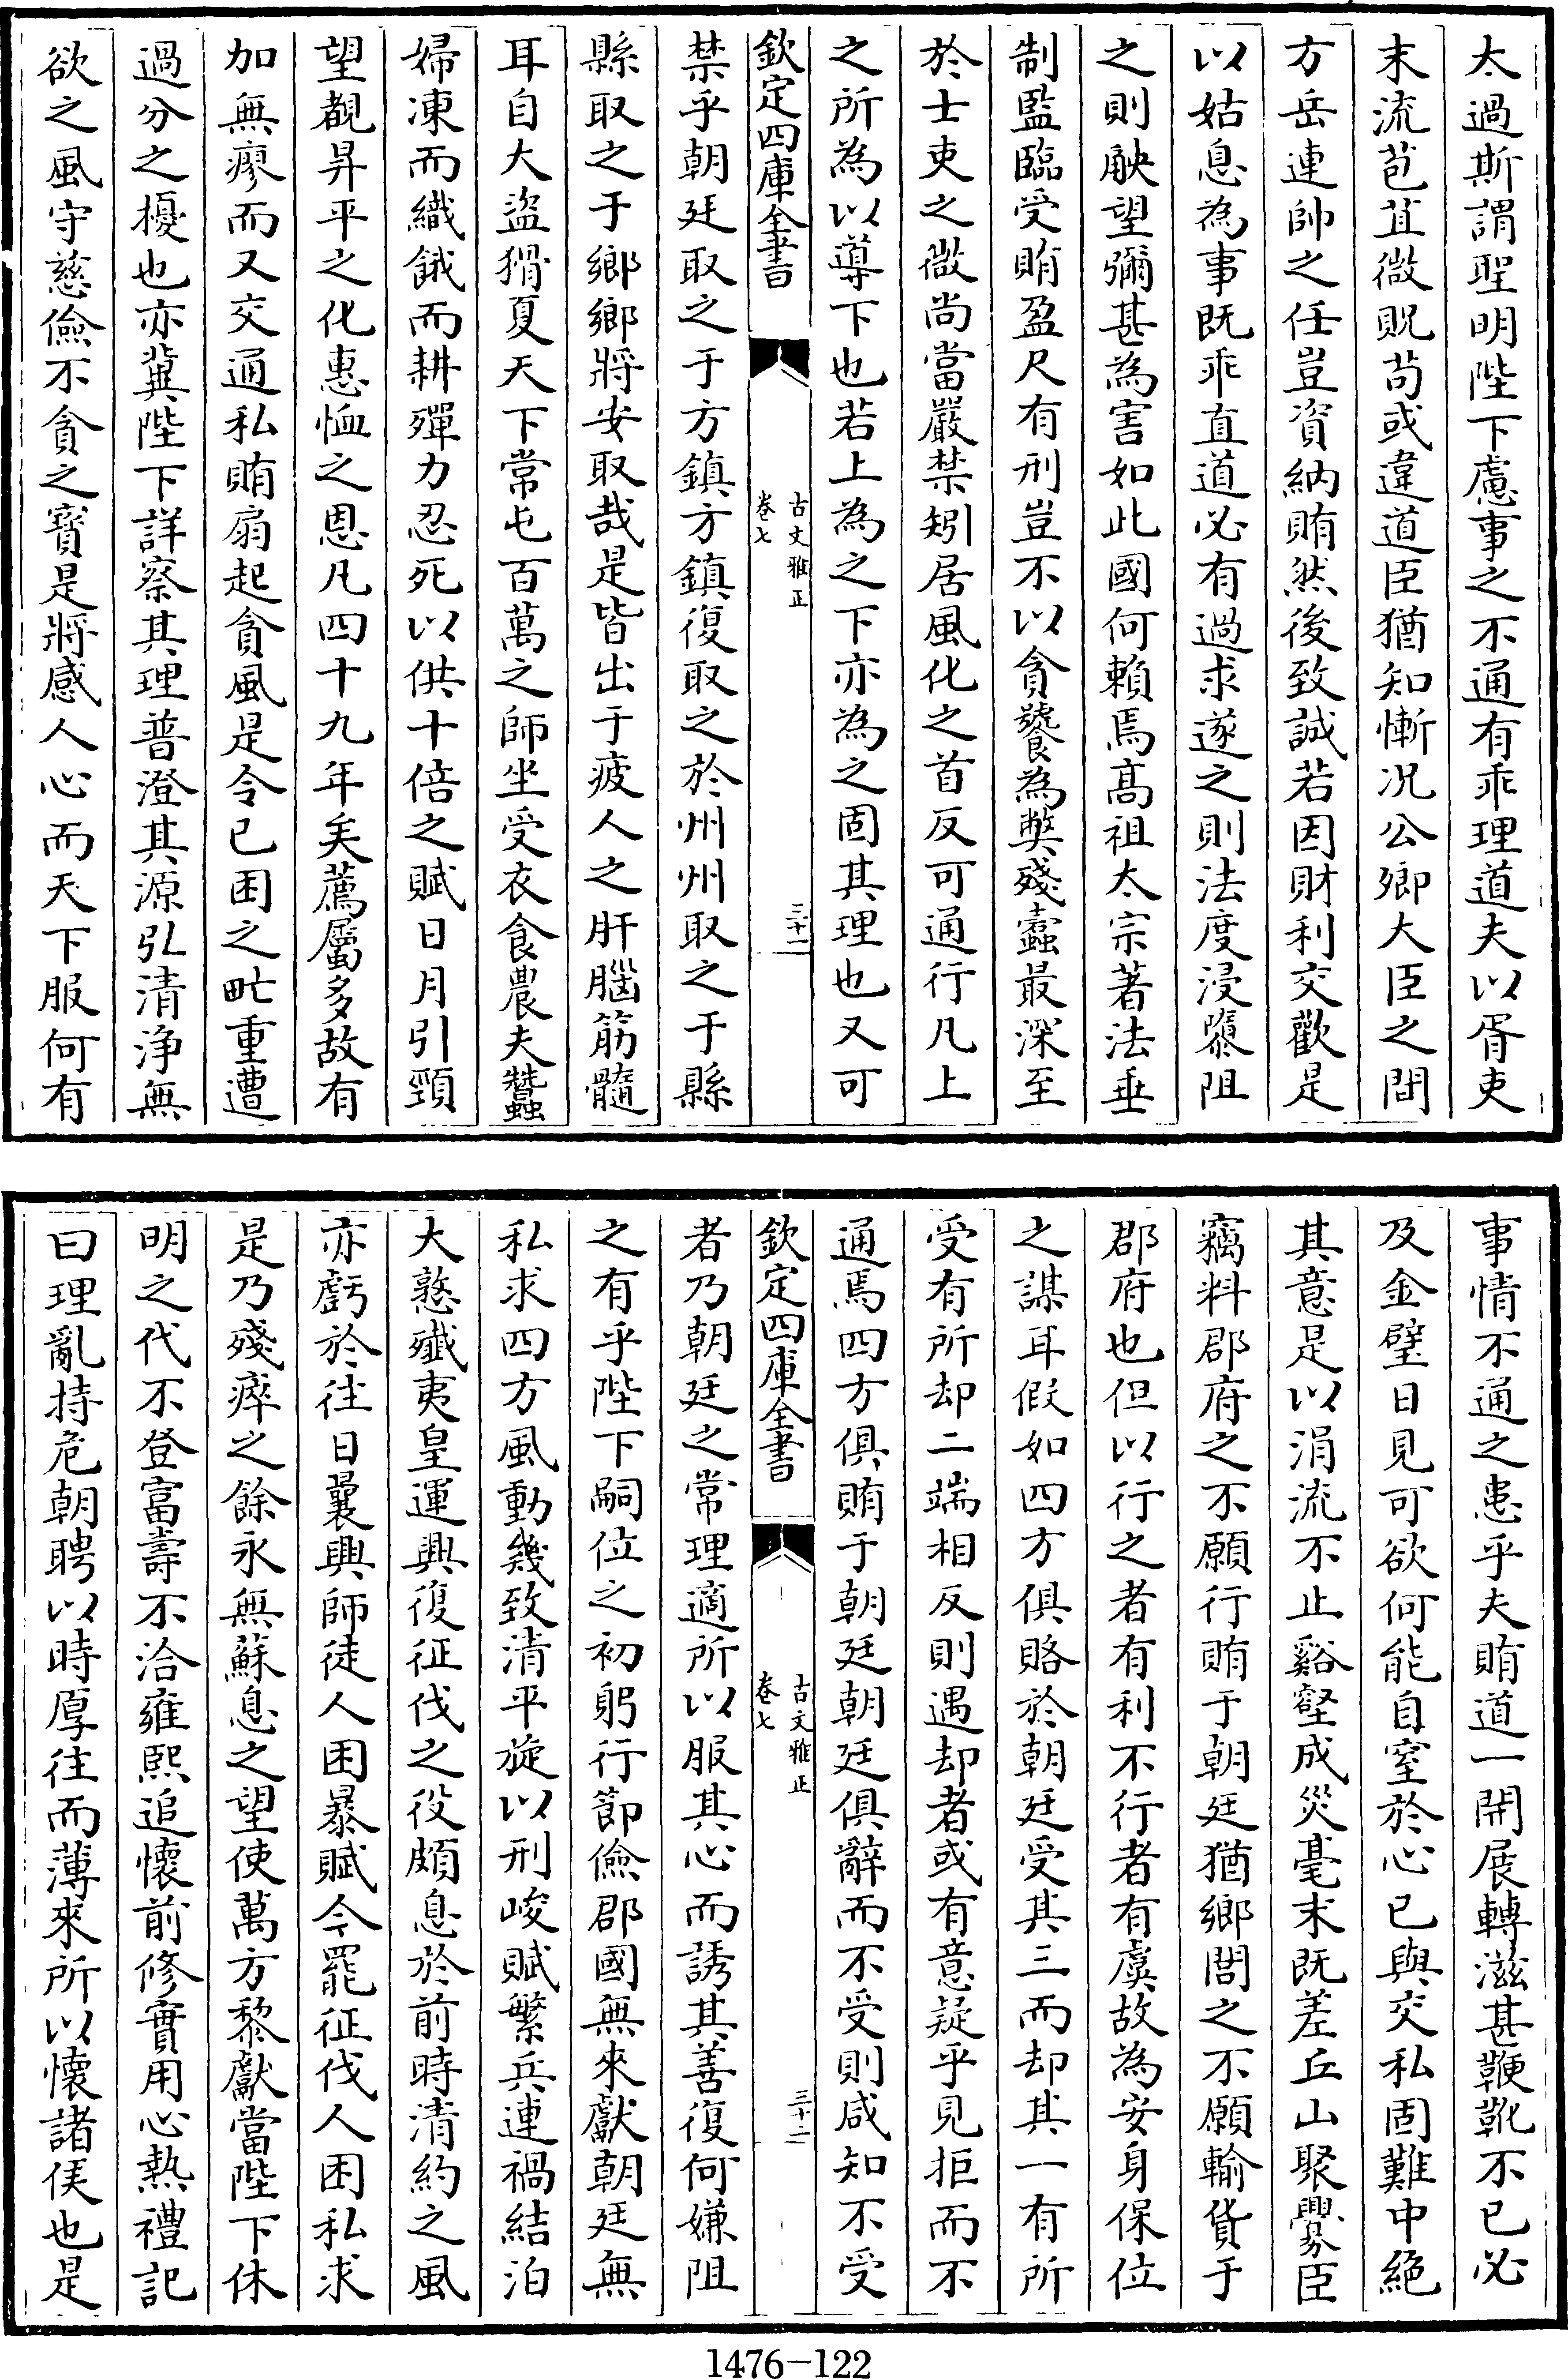 太過斯謂聖明陛下慮事之不通有乖理道夫以胥吏
末流苞苴微貺苟或違道臣猶知慚况公卿大臣之間
方岳連帥之任豈資納賄然後致誠若因財利交歡是
以姑息為事既乖直道必有過求遂之則法度浸隳阻
之則觖望彌甚為害如此國何賴焉高祖太宗著法垂
制監臨受賄盈尺有刑豈不以貪饕為弊殘蠹最深至
於士吏之微尚當嚴禁矧居風化之首反可通行凡上
之所為以導下也若上為之下亦為之固其理也又可
欽定四庫全書
古文雅正
卷七
三十一
禁乎朝廷取之于方鎮方鎮復取之於州州取之于縣
縣取之于鄉鄉將安取哉是皆出于疲人之肝腦筋髓
耳自大盜猾夏天下常屯百萬之師坐受衣食農夫蠶
婦凍而織餓而耕殫力忍死以供十倍之賦日月引頸
望覩昇平之化惠恤之恩凡四十九年矣薦屬多故有
加無瘳而又交通私賄扇起貪風是令已困之甿重遭
過分之擾也亦冀陛下詳察其理普澄其源弘清淨無
欲之風守慈儉不貪之寳是將感人心而天下服何有
事情不通之患乎夫賄道一開展轉滋甚鞭靴不已必
及金璧日見可欲何能自窒於心已與交私固難中絕
其意是以涓流不止谿壑成災毫末既差丘山聚釁臣
竊料郡府之不願行賄于朝廷猶鄉閭之不願輸貨于
郡府也但以行之者有利不行者有虞故為安身保位
之謀耳假如四方俱賂於朝廷受其三而却其一有所
受有所却二端相反則遇却者或有意疑乎見拒而不
通焉四方俱賄于朝廷朝廷俱辭而不受則咸知不受
欽定四庫全書
古文雅正
卷七
三十二
者乃朝廷之常理適所以服其心而誘其善復何嫌阻
之有乎陛下嗣位之初躬行節儉郡國無來獻朝廷無
私求四方風動幾致清平旋以刑峻賦繁兵連禍結洎
大憝殲夷皇運興復征伐之役頗息於前時清約之風
亦虧於往日曩興師徒人困暴賦今罷征伐人困私求
是乃殘瘁之餘永無蘇息之望使萬方黎獻當陛下休
明之代不登富壽不洽雍熙追懷前修實用心熱禮記
曰理亂持危朝聘以時厚往而薄來所以懷諸侯也是
1476-122